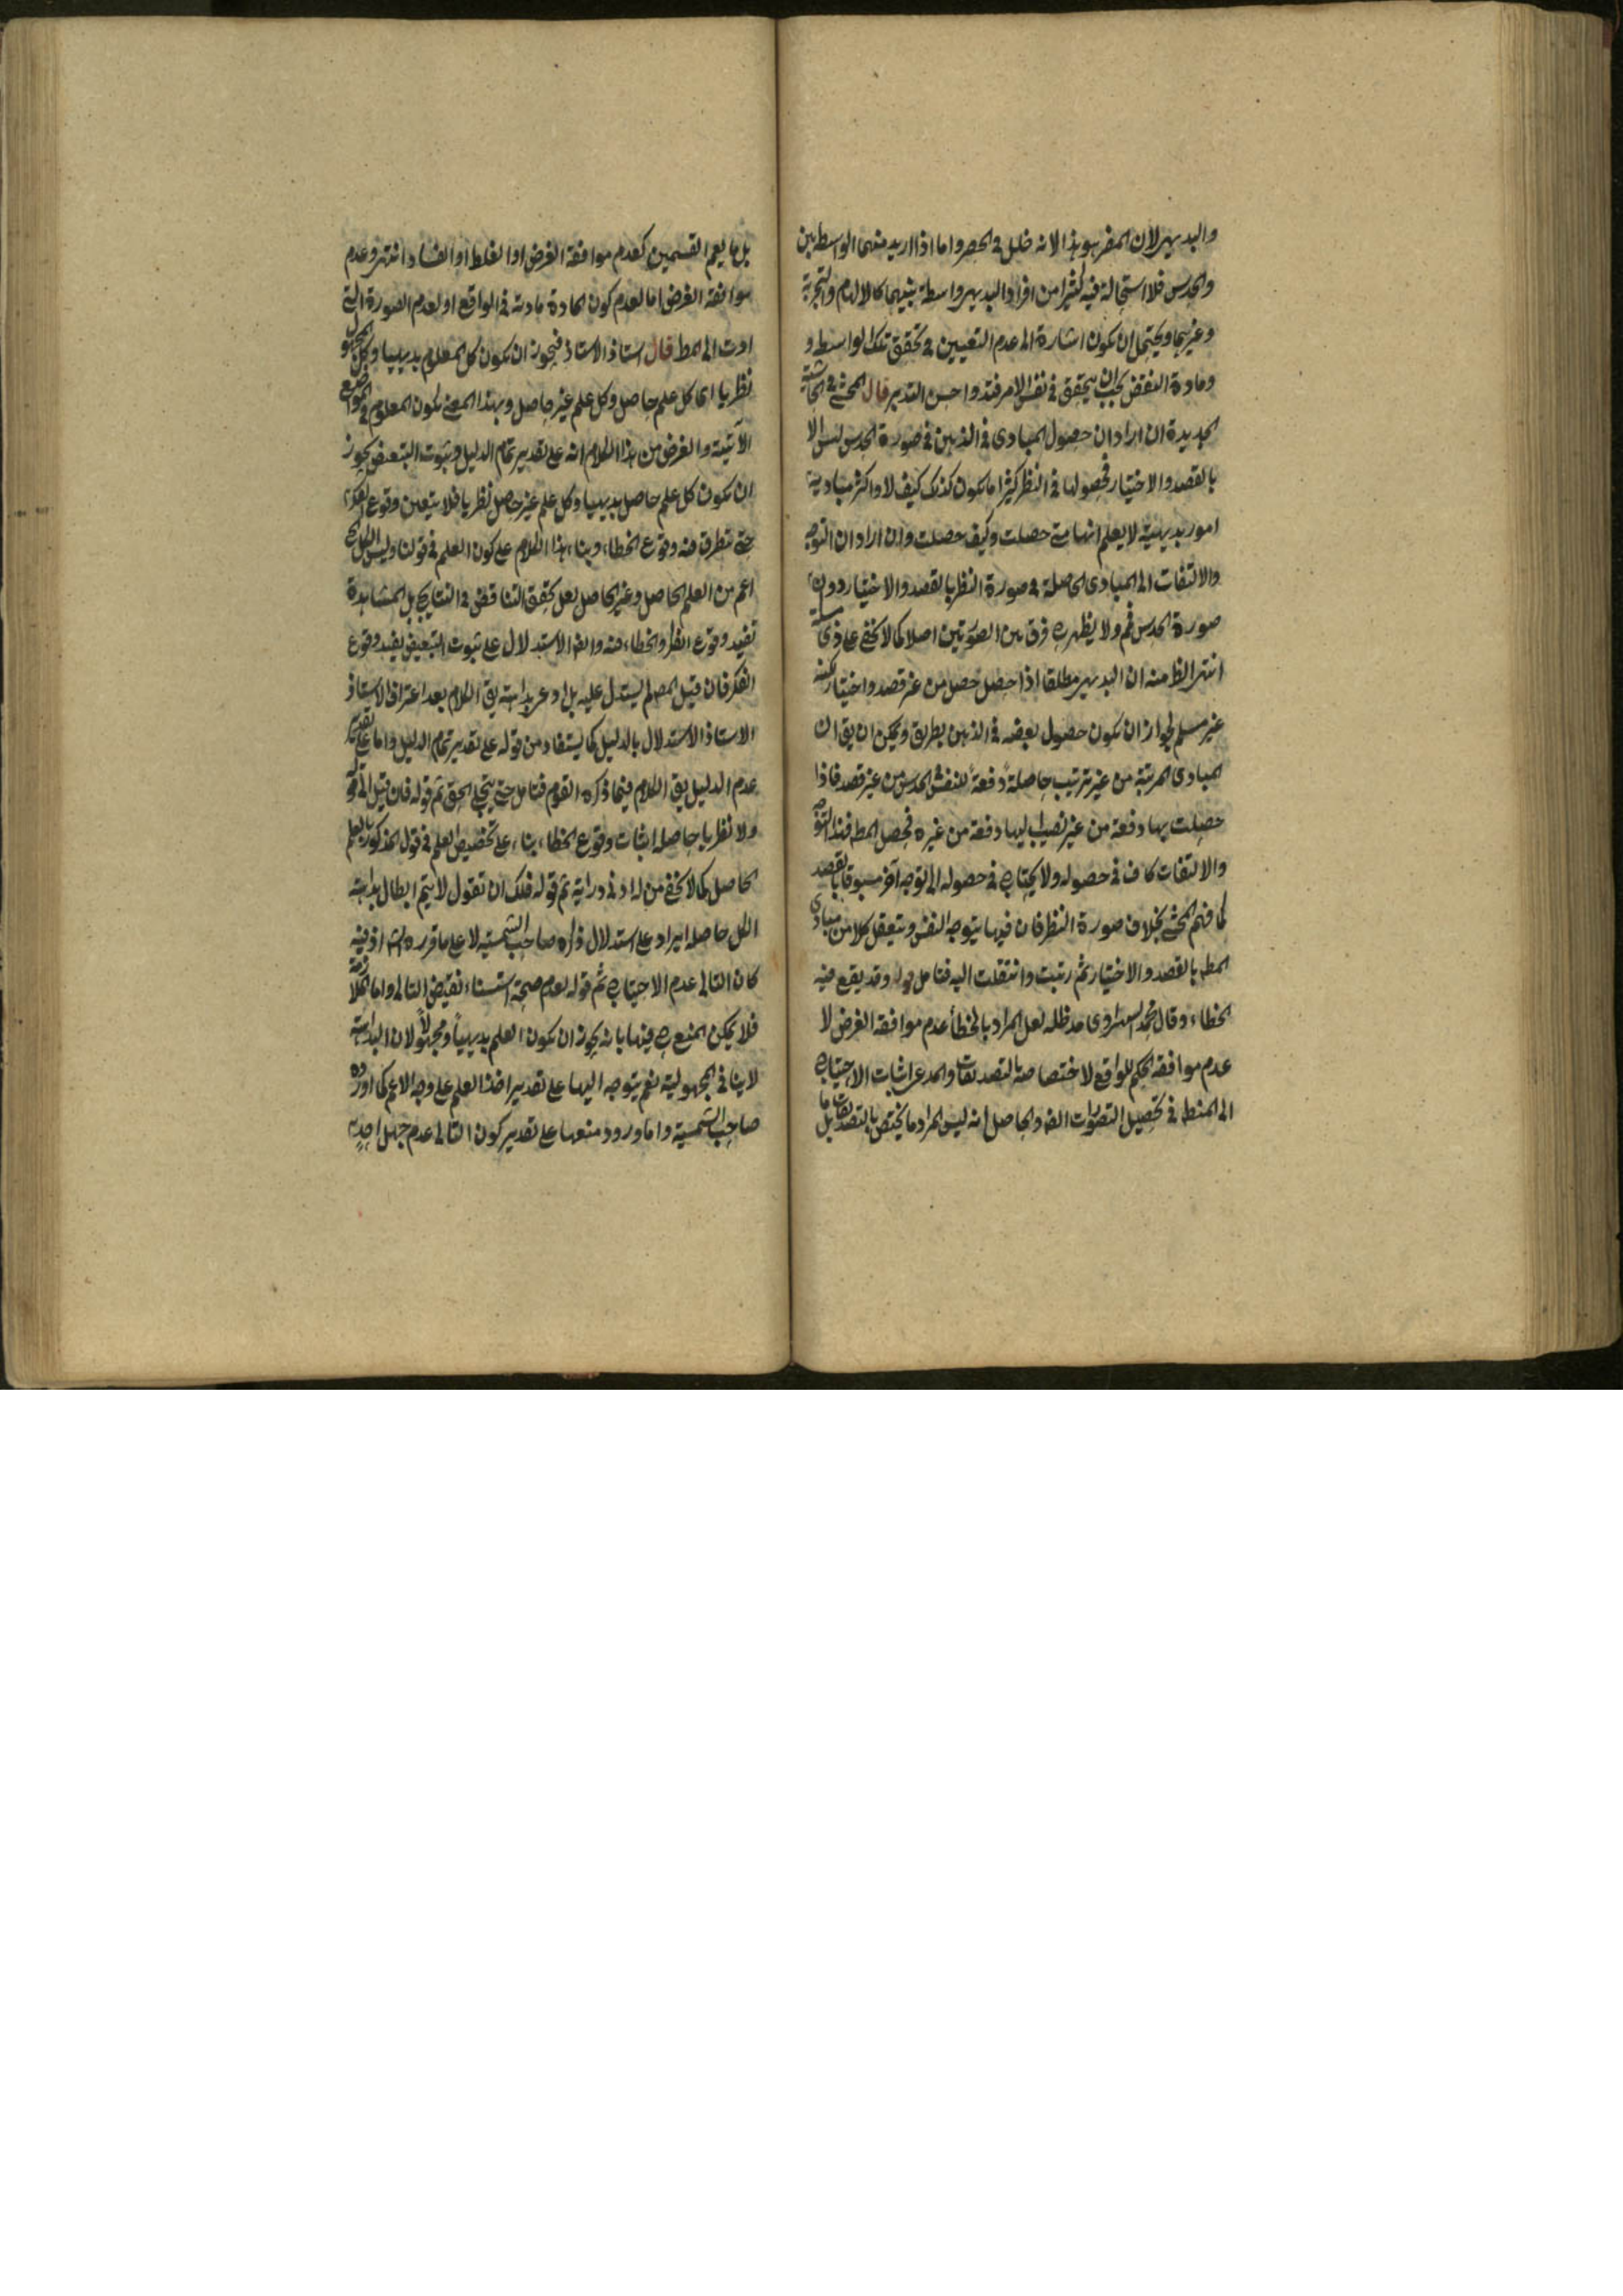 والبديهي لان المضر هو هذا لانه خلل في الحصر واما اذا اريد منهما الواسطة بين
والحدس فلا استحالة فيه كثيرا من افراد البديهي واسطة بينهما كالالهام والتجربة
وغيرهما ويحتمل ان يكون اشارة الى عدم التعيين في تحقق تلك الواسطة و
ومادة النقض يجب ان يتحقق في نفس الامر فتد واحسن التدبر قال المحشي في الحاشية
الجديدة ان اراد ان حصول المبادى في الذهن في صورة الحدس ليس الا
بالقصد والاختيار فحصولها في النظر كثيرا ما يكون كذلك كيف لا واكثر مباديه
امور بديهية لا يعلم انها متى حصلت وكيف حصلت وان اراد ان التوجه
والالتفات الى المبادى الحاصلة في صورة النظر بالقصد والاختيار دون
صورة الحدس فم ولا يظهر ح فرق بين الصورتين اصلا كما لا يخفى على ذى
انتهى الظ منه ان البديهي مطلقا اذا حصل حصل من غير قصد واختيار لكنه
غير مسلم لجواز ان يكون حصول بعضه في الذهن بطريق ويمكن ان يق ان
المبادى المرتبة من غير ترتيب حاصلة دفعة للنفس الحدس من غير قصد فاذا
حصلت بها دفعة من غير نصيب اليها دفعة من غيره فحصل المط فهذا التوجه
والالتفات كاف في حصوله ولا يحتاج في حصوله الى توجه آخر مسبوقا بالقصد
كما فهم المحشي بخلاف صورة النظر فان فيها يتوجه النفس ويتعقل كلا من مبادى
المط بالقصد والاختيار ثم رتبت وانتقلت اليه فتامل قوله وقد يقع فيه
الخطاء وقال محمد مد ظله لعل المراد بالخطأ عدم موافقة الغرض لا
عدم موافقة الحكم للواقع لاختصاصه بالتصديقات والمدعى اثبات الاحتياج
الى المنطق في تحصيل التصورات ايضا والحاصل انه ليس المراد ما يختص بالتصديقات بل ما
بل ما يعم القسمين كعدم موافقة الغرض او الغلط او الفساد انتهى وعدم
موافقة الغرض اما لعدم كون المادة مادته في الواقع او لعدم الصورة التي
ادت الى المط قال استاذ الاستاذ فيجوز ان يكون كل المعلوم بديهيا وكل المجهول
نظريا اى كل علم حاصل وكل علم غير حاصل وبهذا المعنى يكون المعلوم في المواضع
الآتية والغرض من هذا الكلام انه على تقدير تمام الدليل وثبوت التبعض يجوز
ان يكون كل علم حاصل بديهيا وكل علم غير حاصل نظريا فلا يتعين وقوع الفكر
حتى يتطرق منه وقوع الخطاء وبناء هذا الكلام على كون العلم في قولنا وليس الكل
اعم من العلم الحاصل وغير الحاصل لعل تحقق التناقض في النتايج بل المشاهدة
تفيد وقوع النظر والخطاء منه والفه الاستدلال على ثبوت التبعيض يفيد وقوع
الفكر فان قيل المصـ لم يستدل عليه بل ادعى بداهته يق الكلام بعد اعتراف الاستاذ
الاستاذ الاستدلال بالدليل كما يستفاد من قوله على تقدير تمام الدليل واما على تقدير
عدم الدليل يق الكلام فيما ذكره القوم فتامل حتى يتجلى الحق ثم قوله فان قيل الى قوله
ولا نظريا حاصله اثبات وقوع الخطاء بناء على تخصيص العلم في قول المذكور بالعلم
الحاصل كما لا يخفى من له ادنى دراية ثم قوله فلك ان تقول لا يتم ابطال بداهة
الكل حاصله ايراد على استدلال ذكره صاحب الشمسية لا على ما قرره اذ فيه
كان التالى عدم الاحتياج ثم قوله لعدم صحة استثناء نقيض التالى واما الملازمة
فلا يمكن المنع ح فيها بانه يجوز ان يكون العلم بديهياً ومجهولاً لان البداهة
لا ينافى المجهولية نعم يتوجه اليها على تقدير اخذ العلم على وجه الاعم كما اورده
صاحب الشمسية واما ورود منعها على تقدير كون التالى عدم جهل احد